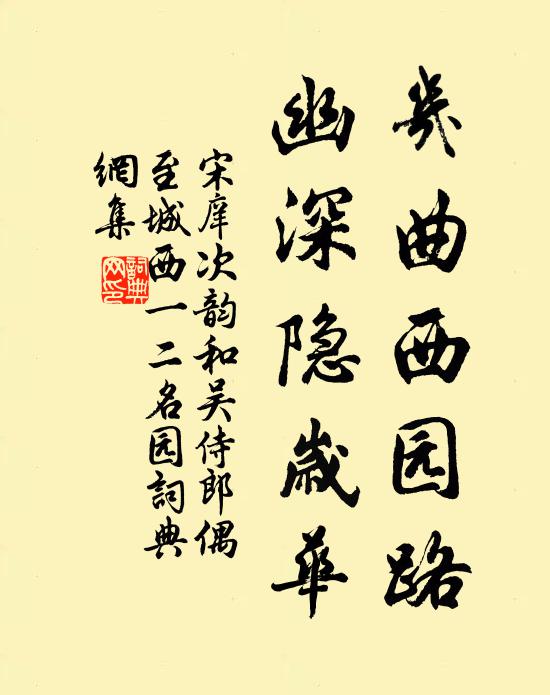 几曲西园路
幽深隐歳華
宋庠次韵和吴侍郎偶
至城西一二名园詞典
網集
詞典
网印